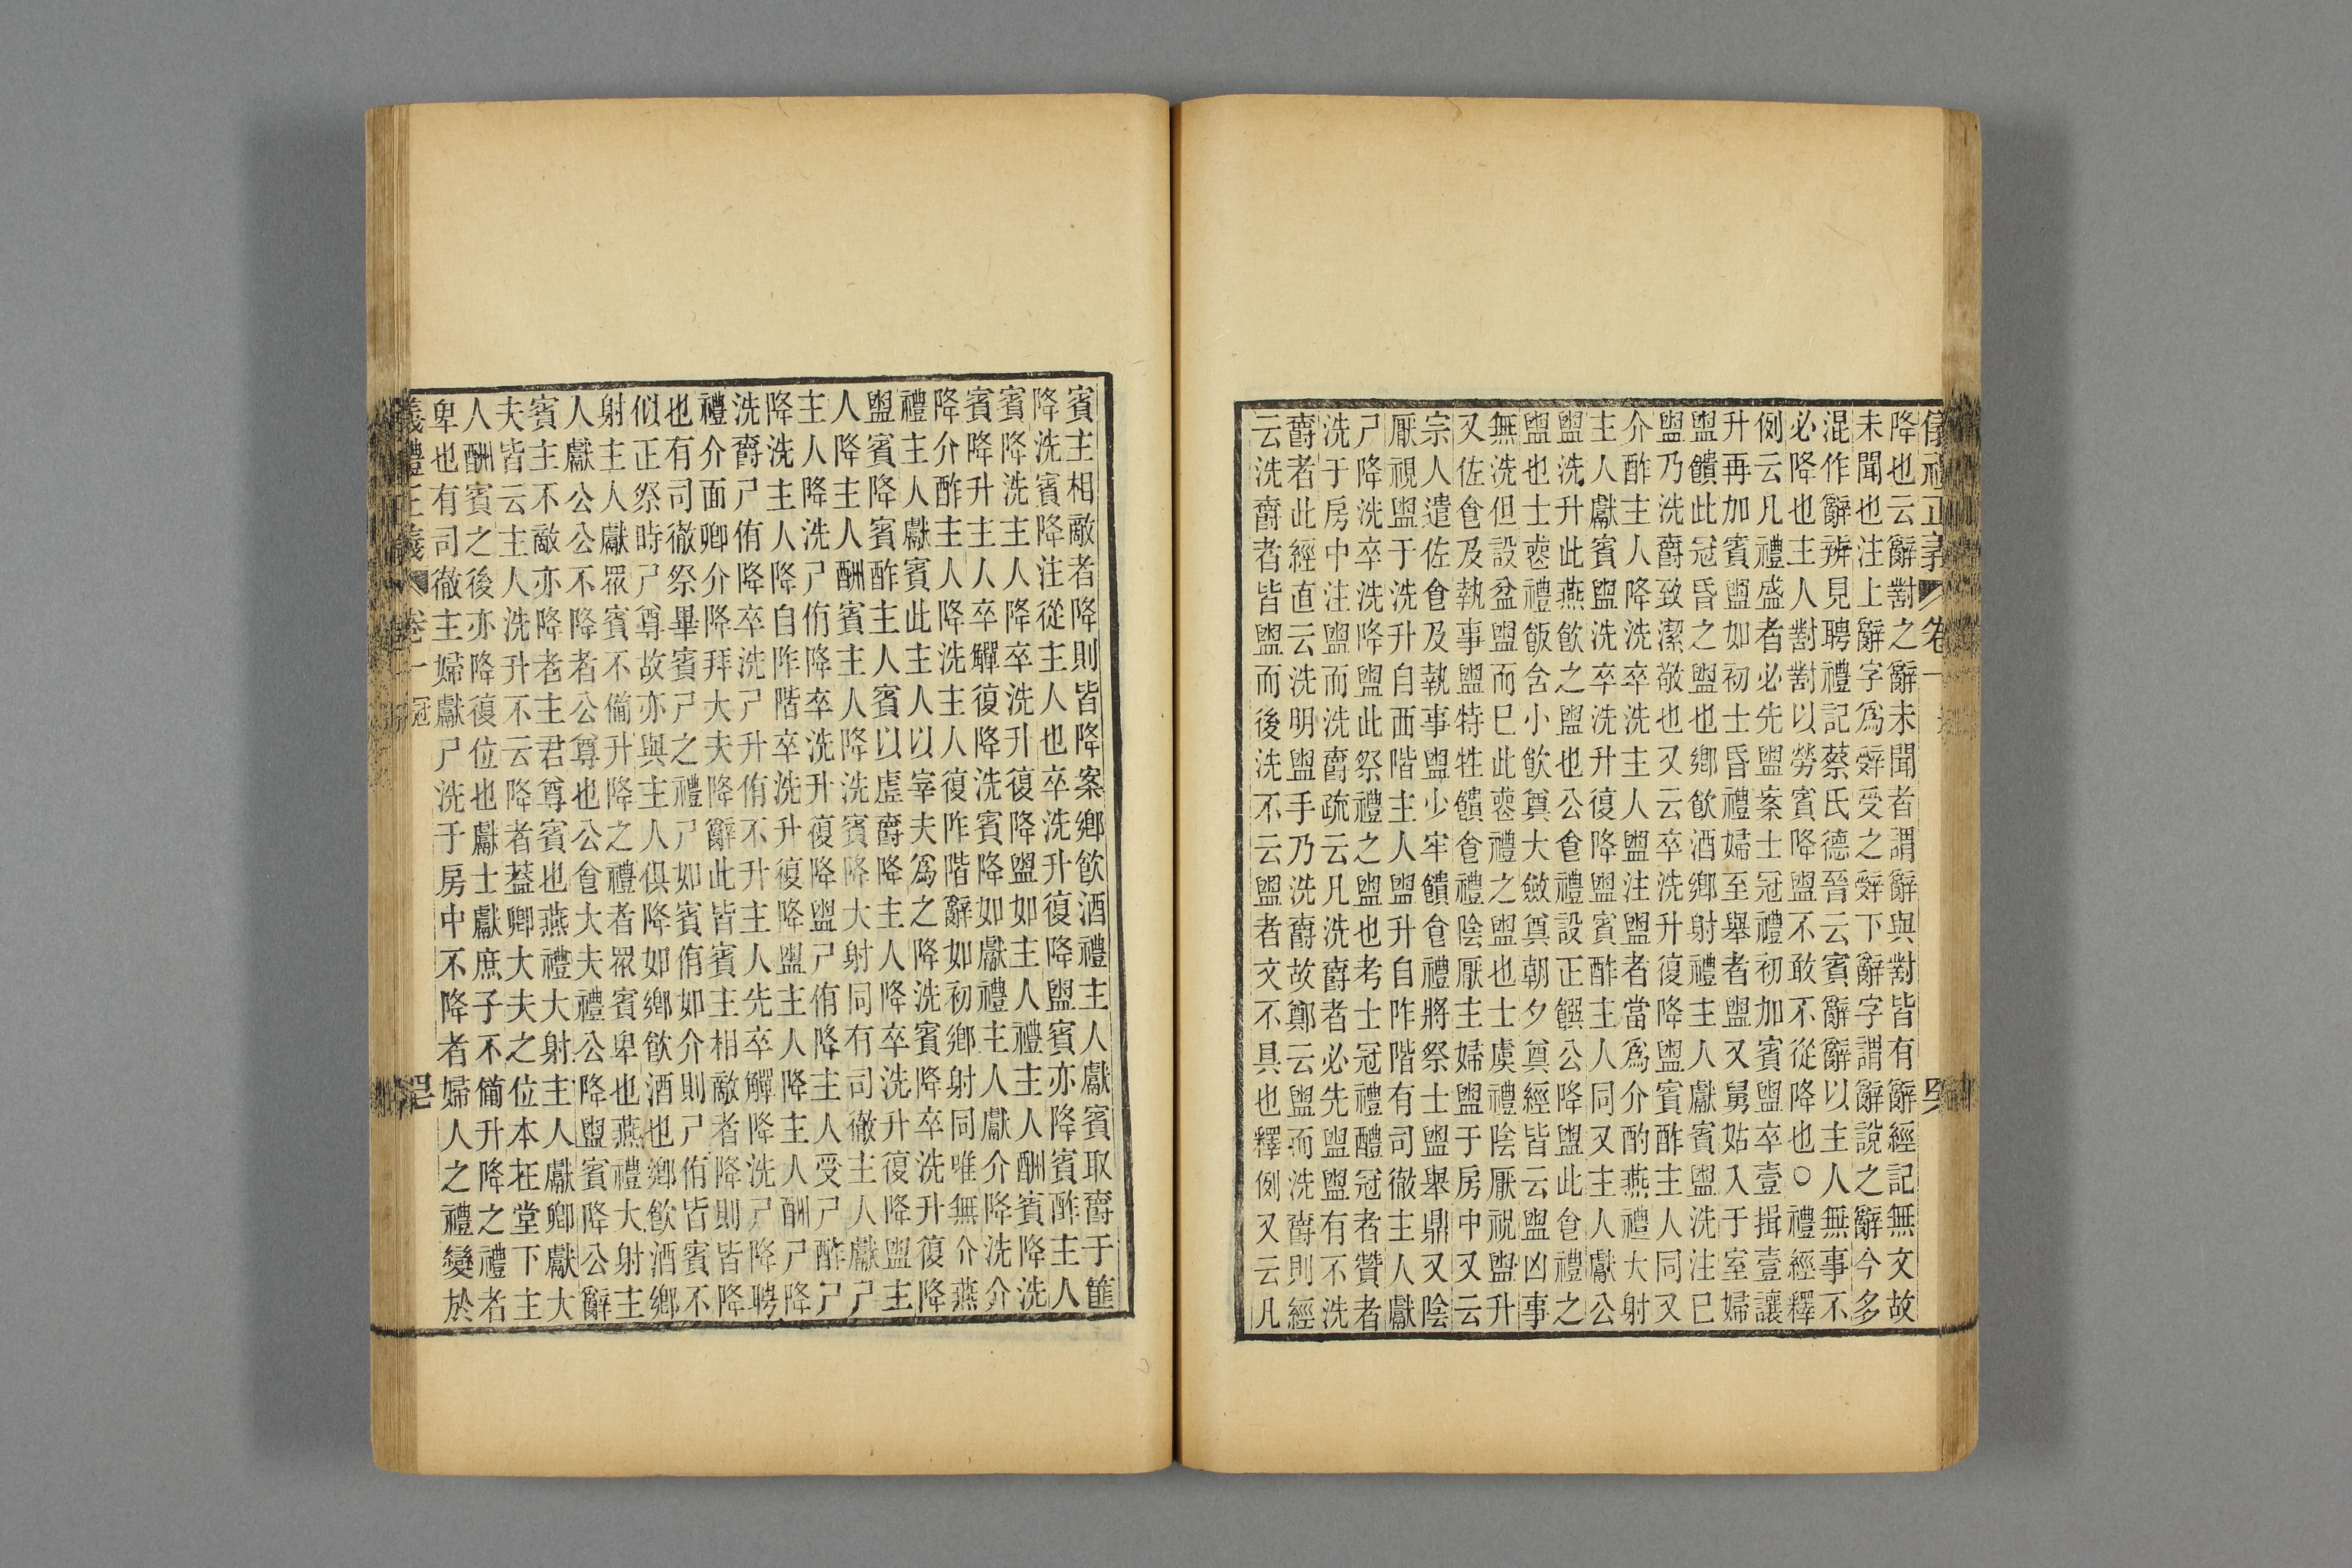 儀禮正義 卷一
降也云辭對之辭未聞者謂辭與對皆有辭經記無文故
未聞也注上辭字爲辤受之辤下辭字謂辭說之辭今多
混作辭辨見聘禮記蔡氏德晉云賓辭辭以主人無事不
必降也主人對對以勞賓降盥不敢不從降也○禮經釋
例云凡禮盛者必先盥案士冠禮初加賓盥卒壹揖壹讓
升再加賓盥如初士昏禮婦至舉者盥又舅姑入于室婦
盥饋此冠昏之盥也鄉飮酒鄉射禮主人獻賓盥洗注已
盥乃洗爵致潔敬也又云卒洗升復降盥賓酢主人同又
介酢主人降洗卒洗主人盥注盥者當爲介酌燕禮大射
主人獻賓盥洗卒洗升復降盥賓酢主人同又主人獻公
盥洗升此燕飮之盥也公食禮設正饌公降盥此食禮之
盥也士喪禮飯含小飮奠大斂奠朝夕奠經皆云盥凶事
無洗但設盆盥而已此喪禮之盥也士虞禮陰厭祝盥升
又佐食及執事盥特牲饋食禮陰厭主婦盥于房中又云
宗人遣佐食及執事盥少牢饋食禮將祭士盥舉鼎又陰
厭視盥于洗升自西階主人盥升自阼階有司徹主人獻
尸降洗卒洗降盥此祭禮之盥也考士冠禮醴冠者贊者
洗于房中注盥而洗爵疏云凡洗爵者必先盥盥有不洗
爵者此經直云洗明盥手乃洗爵故鄭云盥而洗爵則經
云洗爵者皆盥而後洗不云盥者文不具也釋例又云凡
賓主相敵者降則皆降案鄉飮酒禮主人獻賓取爵于篚
降洗賓降注從主人也卒洗升復降盥賓亦降賓酢主人
賓降洗主人降卒洗升復降盥如主人禮主人酬賓降洗
賓降升主人卒觶復降洗賓降如獻禮主人獻介降洗介
降介酢主人降洗主人復阼階辭如初鄉射同唯無介燕
禮主人獻賓此主人以宰夫爲之降洗賓降卒洗升復降
盥賓降賓酢主人賓以虛爵降主人降卒洗升復降盥主
人降主人酬賓主人降洗賓降大射同有司徹主人獻尸
主人降洗尸侑降卒洗升復降盥尸侑降主人受尸酢尸
降洗主人降自阼階卒洗升復降盥主人降主人酬尸降
洗爵尸侑降卒洗尸升侑不升主人先卒觶降洗尸降聘
禮介面卿介降拜大夫降辭此皆賓主相敵者降則皆降
也有司徹祭畢賓尸之禮尸如賓侑如介則尸侑皆賓不
似正祭時尸尊故亦與主人俱降如鄉飮酒也鄉飮酒鄉
射主人獻眾賓不備升降之禮者眾賓卑也燕禮大射主
人獻公公不降者公尊也公食大夫禮公降盥賓降公辭
賓主不敵亦降者主君尊賓也燕禮大射主人獻卿獻大
夫皆云主人洗升不云降者蓋卿大夫之位本在堂下主
人酬賓之後亦降復位也獻士獻庶子不備升降之禮者
卑也有司徹主婦獻尸洗于房中不降者婦人之禮變於
儀禮正義 卷一 冠